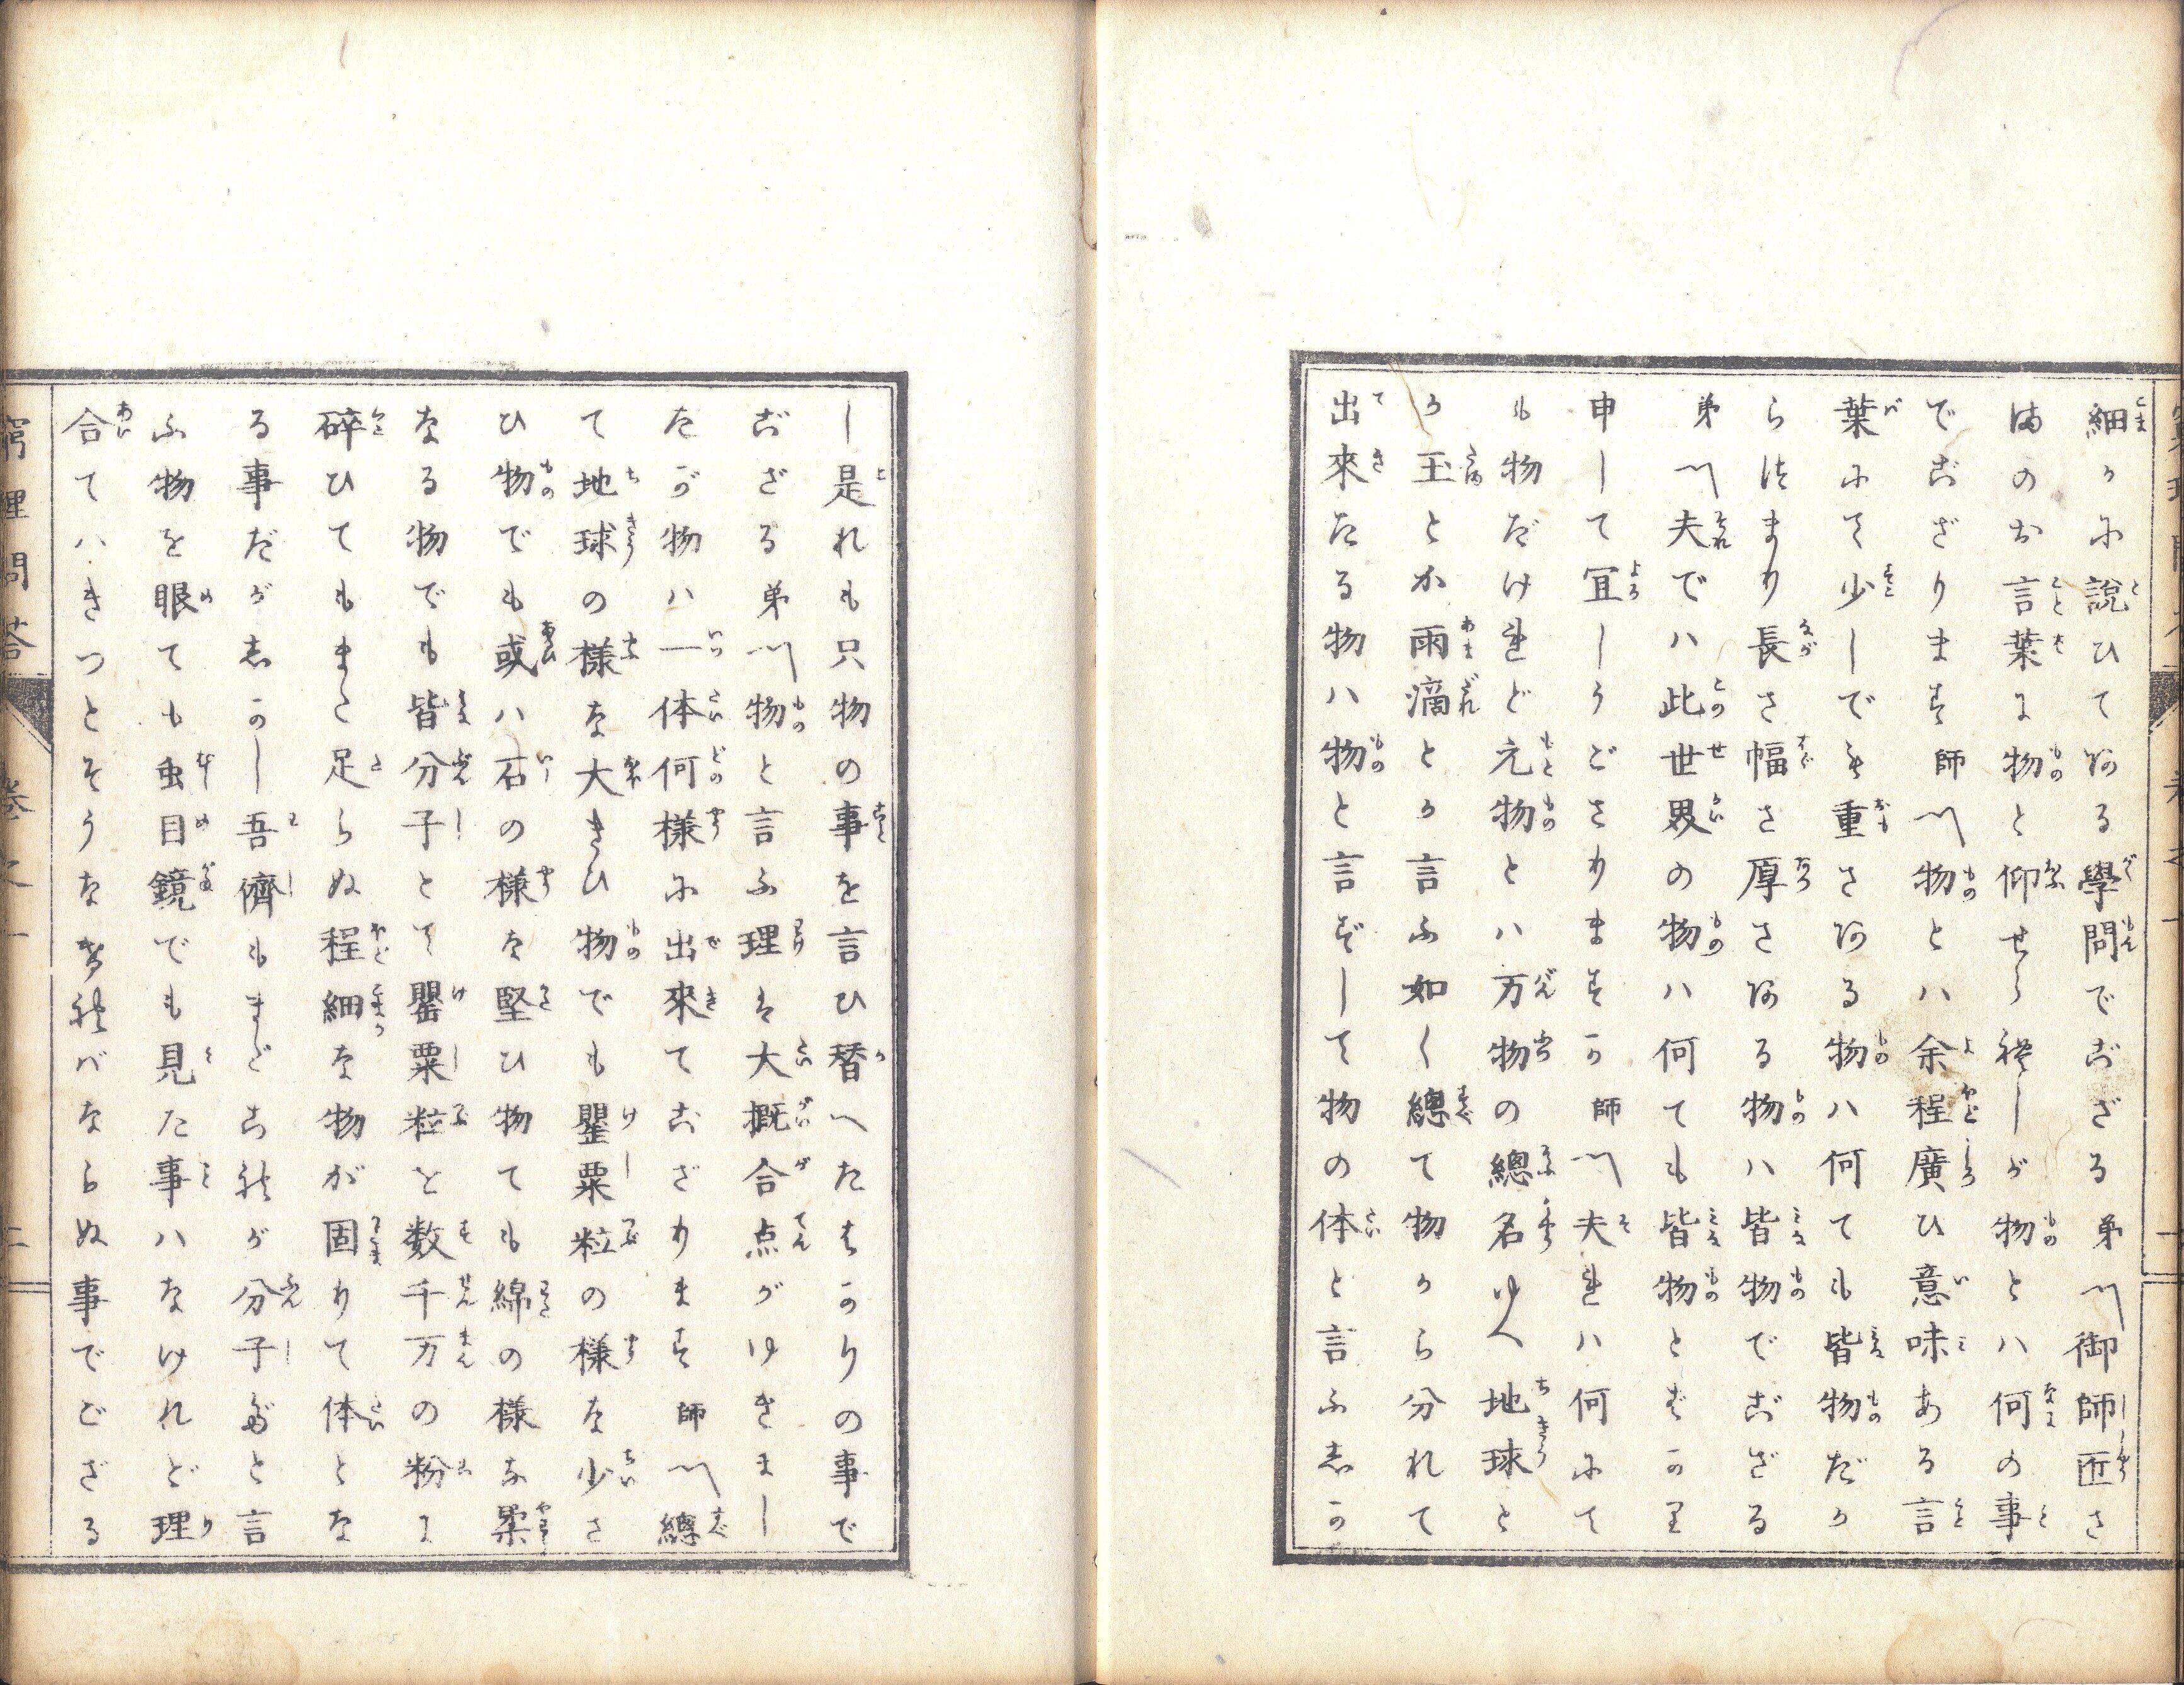 細かに説ひてある學問でござる弟〽御師匠さ
まのお言葉に物と仰せられましが物とハ何の事
でござります師〽物とハ余程廣ひ意味ある言
葉にて少しでも重さある物ハ何ても皆物だか
らつまり長さ幅さ厚さある物ハ皆物でござる
弟〽夫でハ此世界の物ハ何ても皆物とばかり
申して宜しうごさりますか師〽夫れハ何にて
も物だけれど元物とハ万物の總名ゆへ地球と
か玉とか雨滴とか言ふ如く總て物から分れて
出來たる物ハ物と言ずして物の体と言ふしか
し是れも只物の事を言ひ替へたはかりの事で
ござる弟〽物と言ふ理は大概合点がゆきまし
たが物ハ一体何様に出來てござります師〽總
て地球の様な大きひ物でも罌粟粒の様な少さ
ひ物でも或ハ石の様な堅ひ物ても綿の様な柔
なる物でも皆分子とて罌粟粒を数千万の粉に
碎ひてもまた足らぬ程細な物が固りて体とな
る事だがしかし吾儕もまだこれが分子だと言
ふ物を眼ても虫目鏡でも見た事ハなけれど理
合てハきつとそうなけれバならぬ事でござる
窮理問答 巻之一 二